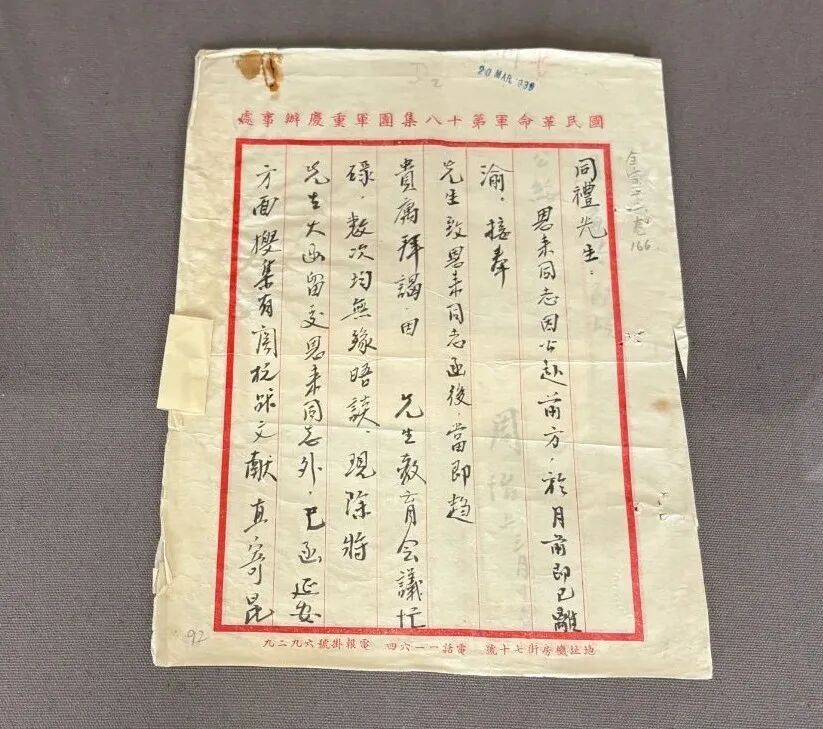 20 MAR 1939
國民革命軍第十八集團軍重慶辦事處
同禮先生：
恩来同志因公赴前方，於月前即已離
渝，接奉
先生致恩来同志函後，當即趋
貴寓拜謁，因　先生教育会議忙
碌，数次均無缘晤談，現除將
先生大函留交恩来同志外，已函延安
方面搜集有関抗战文献直寄昆
166
92
地址機房街七十號　電話一一六四　電報掛號六九二九